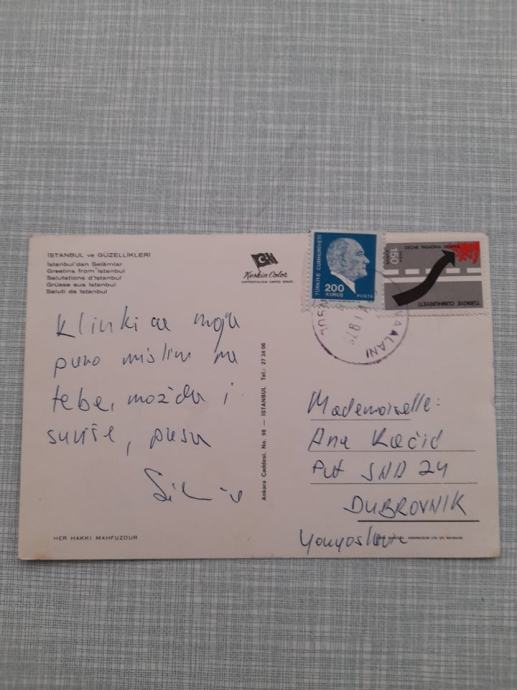 İSTANBUL ve GÜZELLİKLERİ
İstanbul'dan Selâmlar
Greetins from Istanbul
Salutations d'Istanbul
Grüsse aus Istanbul
Saluti da Istanbul
Keskin Color
Klinki ca moja
puno mislim na
tebe, možda i
suviše, pusa
HER HAKKI MAHFUZDUR
Ankara Caddesi, No. 98 — İSTANBUL Tel.: 27 24 06
TÜRKİYE CUMHURİYETİ
200
KURUŞ
POSTA
150
TÜRKİYE CUMHURİYETİ
Mademoiselle:
Ane Kačić
Put JNA 24
DUBROVNIK